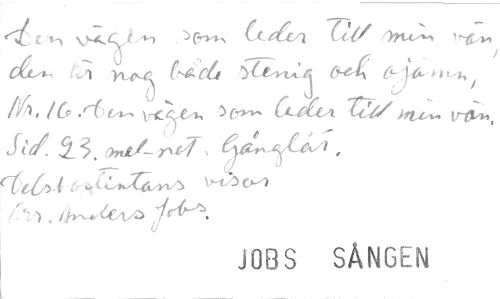 Den vägen som leder till min vän,
den är nog både stenig och ojämn,
Nr. 16. Den vägen som leder till min vän.
Sid. 23. mel-not. Gånglåt.
Delsbostintans visor
Arr. Anders Jobs.
JOBS SÅNGEN